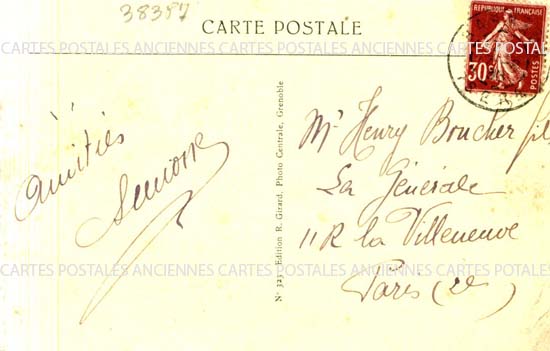 38387
CARTE POSTALE
REPUBLIQUE FRANÇAISE
30c
POSTES
Amitiés
Nº 323 - Edition R. Girard, Photo Centrale, Grenoble
Mr Henry Boucher fils
La Générale
11 R la Villeneuve
Paris (2e)
CARTES POSTALES ANCIENNES CARTES POSTALES ANCIENNES CARTES POSTALES ANCIENNES
CARTES POSTALES ANCIENNES CARTES POSTALES ANCIENNES CARTES POSTALES ANCIENNES